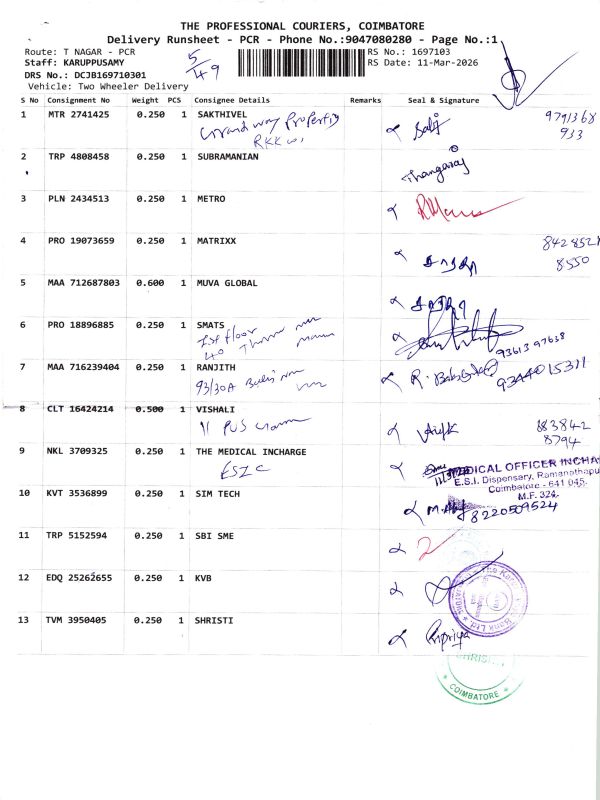 THE PROFESSIONAL COURIERS, COIMBATORE
Delivery Runsheet - PCR - Phone No.:9047080280 - Page No.:1
Route: T NAGAR - PCR
RS No.: 1697103
Staff: KARUPPUSAMY
5/49
RS Date: 11-Mar-2026
DRS No.: DCJB169710301
Vehicle: Two Wheeler Delivery
S No Consignment No Weight PCS Consignee Details Remarks Seal & Signature
1 MTR 2741425 0.250 1 SAKTHIVEL
Grand way Property
9791368
933
2 TRP 4808458 0.250 1 SUBRAMANIAN
Thangaraj
3 PLN 2434513 0.250 1 METRO
4 PRO 19073659 0.250 1 MATRIXX
842852
8550
5 MAA 712687803 0.600 1 MUVA GLOBAL
6 PRO 18896885 0.250 1 SMATS
1st floor
40
93613 97638
7 MAA 716239404 0.250 1 RANJITH
93/30A
9344015311
8 CLT 16424214 0.500 1 VISHALI
11 PUS
83842
8794
9 NKL 3709325 0.250 1 THE MEDICAL INCHARGE
MEDICAL OFFICER INCHA
E.S.I. Dispensary, Ramanathapu
Coimbatore - 641 045.
M.F. 324.
10 KVT 3536899 0.250 1 SIM TECH
8220509524
11 TRP 5152594 0.250 1 SBI SME
12 EDQ 25262655 0.250 1 KVB
Bank Ltd.
13 TVM 3950405 0.250 1 SHRISTI
COIMBATORE